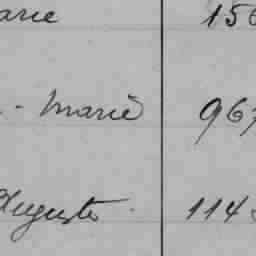 arie 156
- Marie 967
Auguste 114